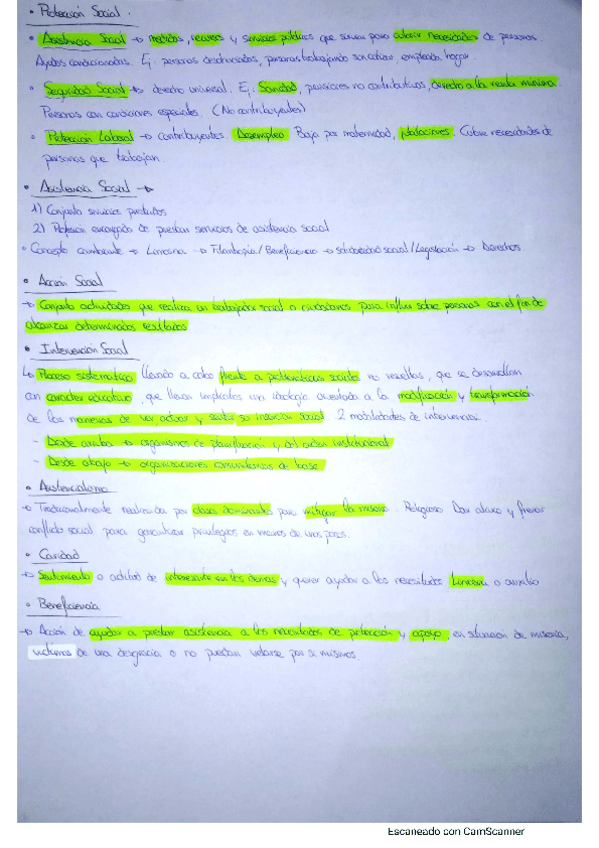 • Protección Social.
• Asistencia Social → medidas, recursos y servicios públicos que sirven para cubrir necesidades de personas.
Ayudas condicionadas. Ej. personas desahuciadas, personas trabajando sin cotizar, empleada hogar.
• Seguridad Social → derecho universal. Ej. Sanidad, pensiones no contributivas, derecho a la renta mínima.
Personas con condiciones especiales. (No contribuyentes)
• Protección Laboral → contribuyentes. Desempleo Baja por maternidad, jubilaciones. Cubre necesidades de
personas que trabajan.
• Asistencia Social →
1) Conjunto servicios prestados
2) Profesión encargada de prestar servicios de asistencia social
• Concepto cambiante → Limosna → Filantropía/Beneficencia → solidaridad social/Legislación → Derechos.
• Acción Social
→ Conjunto actividades que realiza un trabajador social o ciudadanos para influir sobre personas con el fin de
alcanzar determinados resultados
• Intervención Social
↳ Proceso sistemático llevado a cabo frente a problemáticas sociales no resueltas, que se desarrollan
con carácter educativo, que llevan implicitas una ideología orientada a la modificación y transformación
de las maneras de ver, actuar y sentir su inserción social. 2 modalidades de intervención.
- Desde arriba → organismos de planificación y del orden institucional
- Desde abajo → organizaciones comunitarias de base
• Asistencialismo
→ Tradicionalmente realizada por clases dominantes para mitigar la miseria. Religioso. Dar alivio y frenar
conflicto social para garantizar privilegios en manos de unos pocos.
• Caridad
→ Sentimiento o actitud de interesarse en los demás y querer ayudar a los necesitados Limosna o auxilio
• Beneficencia
→ Acción de ayudar a prestar asistencia a los necesitados de protección y apoyo, en situación de miseria,
víctimas de una desgracia o no puedan valerse por si mismos.
Escaneado con CamScanner